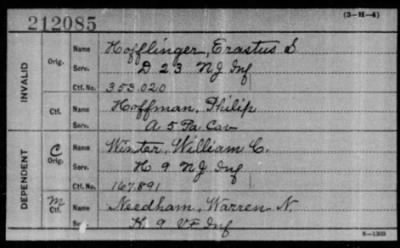 212085
(3-H-4)
INVALID
Orig.
Name Hofflinger, Erastus S.
Serv. D 23 NJ Inf
Ctf. No. 353.020
Ctf.
Name Hoffman, Philip
Serv. A 5 Pa Cav
DEPENDENT
C Orig.
Name Winter, William C.
Serv. H 9 NJ Inf
Ctf. No. 167.891
M Ctf.
Name Needham, Warren N.
Serv. K 9 VT Inf